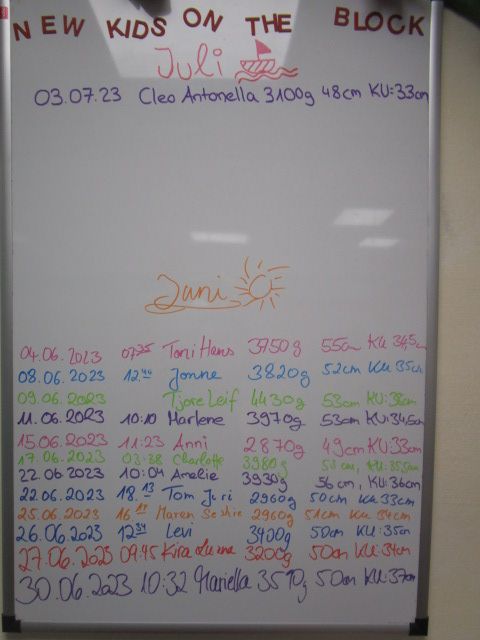 NEW KIDS ON THE BLOCK
Juli
03.07.23 Cleo Antonella 3100g 48cm KU:33cm
Juni
04.06.2023 07:35 Toni Hans 3750g 55cm KU 34,5cm
08.06.2023 12.44 Jonne 3820g 52cm KU 35cm
09.06.2023 Tjore Leif 4430g 53cm KU:38cm
11.06.2023 10:10 Marlene 3970g 53cm KU:34,5cm
15.06.2023 11:23 Anni 2870g 49cm KU:33cm
17.06.2023 03:38 Charlotte 3980g 53cm, KU:35,5cm
22.06.2023 10:04 Amelie 3930g 56cm, KU:36cm
22.06.2023 18.13 Tom Juri 2960g 50cm KU 33cm
25.06.2023 Maren 2960g 51cm KU 34cm
26.06.2023 12:34 Levi 3400g 50cm KU:35cm
27.06.2023 09:45 Kira 3200g 50cm KU:34cm
30.06.2023 10:32 Mariella 3570g 50cm KU:37cm